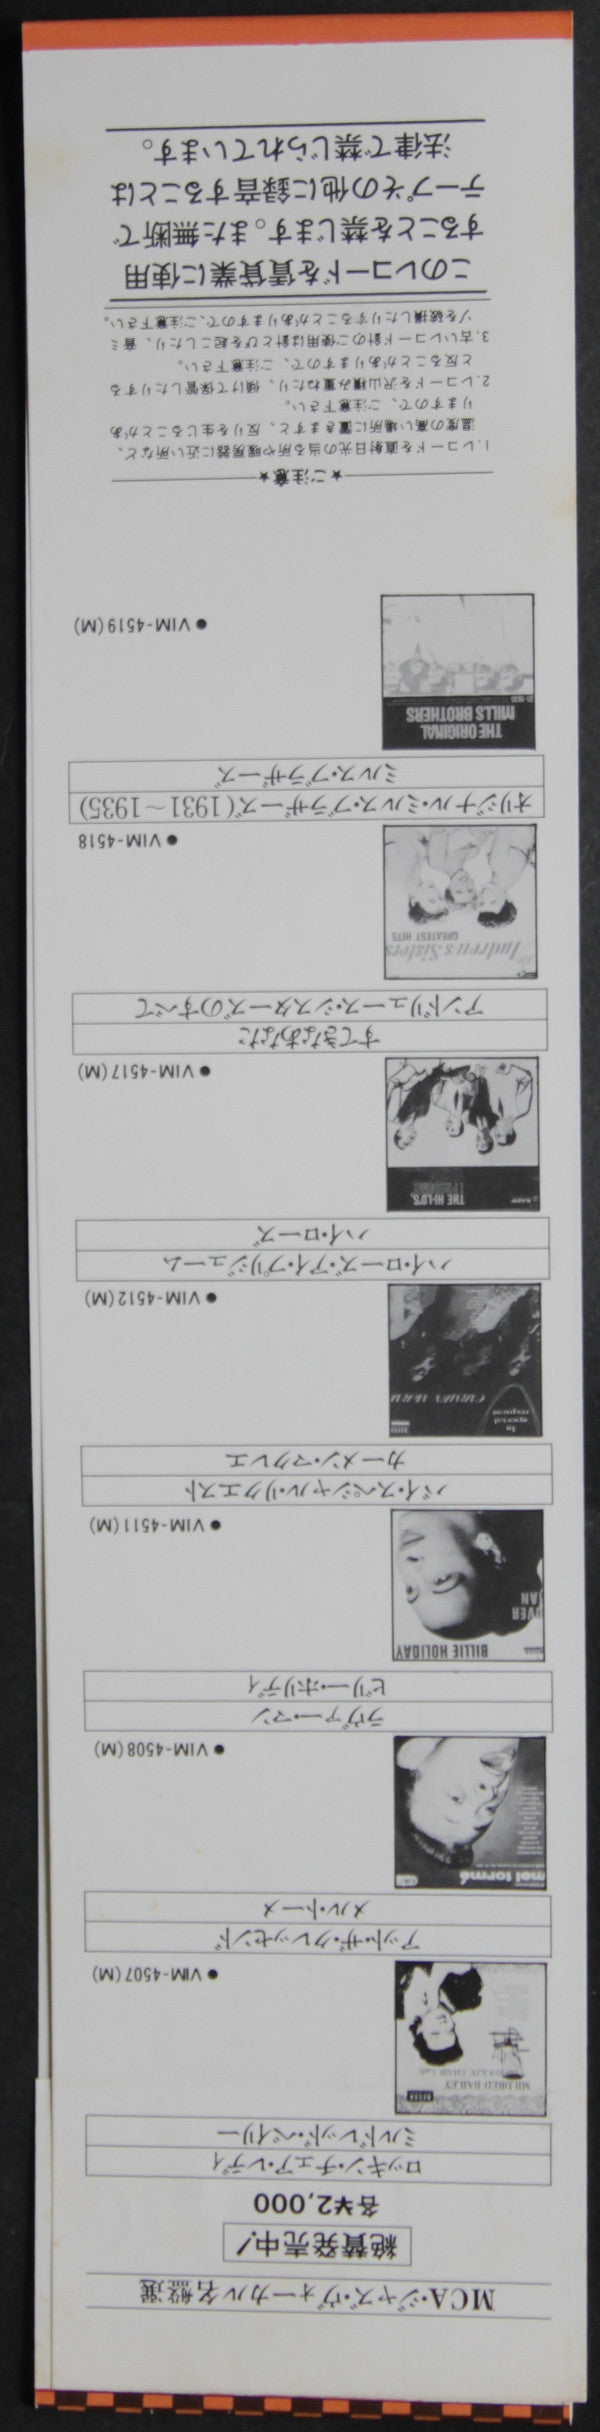 MCA・ジャズ・ヴォーカル名盤選
絶賛発売中!
各¥2,000
ロッキン・チェア・レディ
ミルドレッド・ベイリー
DECCA
MILDRED BAILEY
● VIM-4507(M)
アット・ザ・クレッセンド
メル・トーメ
mel tormé
● VIM-4508(M)
ラヴァー・マン
ビリー・ホリディ
BILLIE HOLIDAY
● VIM-4511(M)
バイ・スペシャル・リクエスト
カーメン・マクレエ
by
special
request
CARMEN McRAE
● VIM-4512(M)
ハイ・ローズ・アイ・プリジューム
ハイ・ローズ
THE HI-LO'S,
I PRESUME
● VIM-4517(M)
すてきなあなた
アンドリュース・シスターズのすべて
The Andrews Sisters
GREATEST HITS
● VIM-4518
オリジナル・ミルス・ブラザーズ(1931~1935)
ミルス・ブラザーズ
THE ORIGINAL
MILLS BROTHERS
● VIM-4519(M)
★ご注意★
1.レコードを直射日光の当る所や暖房器に近い所など、
温度の高い場所に置きますと、反りを生じることがあ
りますので、ご注意下さい。
2.レコードを沢山積み重ねたり、傾けて保管したりする
と反ることがありますので、ご注意下さい。
3.古いレコード針のご使用は針とびを起こしたり、音ミ
ゾを破損したりすることがありますので、ご注意下さい。
このレコードを賃貸業に使用
することを禁じます。また無断で
テープその他に録音することは
法律で禁じられています。